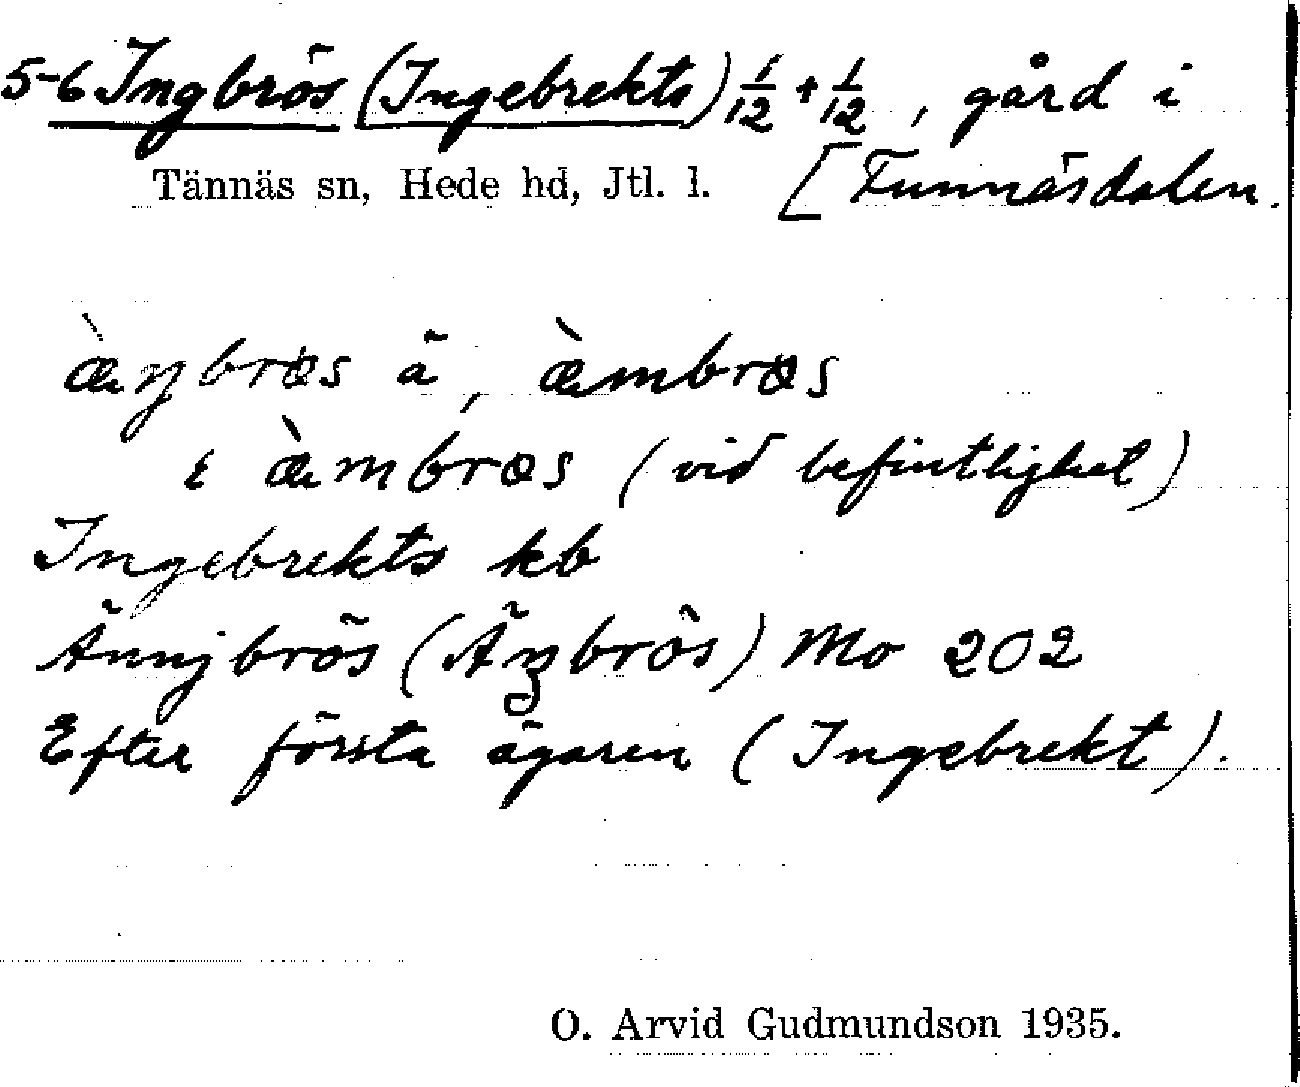 5-6 Ingbrös (Ingebrekts) 1/12 + 1/12, gård i
Tännäs sn, Hede hd, Jtl. l. [Funnäsdalen.
æ̀ŋbrøs ä, æ̀mbrøs
i æ̀mbrøs (vid befintlighet)
Ingebrekts kb
Ännjbrös (Äŋbrös) Mo 202
Efter första ägaren (Ingebrekt).
O. Arvid Gudmundson 1935.